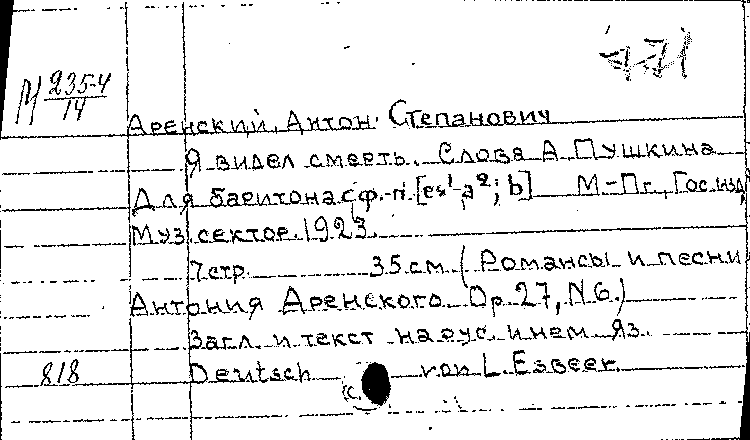 М 235-4
14
Аренский, Антон Степанович
Я видел смерть. Слова А Пушкина
Для баритона с ф.-п. [es¹-a²; b] М-Пг, Гос.изд,
Муз.сектор. 1923.
7стр. 35см. (Романсы и песни
Антония Аренского. Op 27, N6.)
Загл. и текст на рус. и нем яз.
818 Deutsch von L. Esbeer.